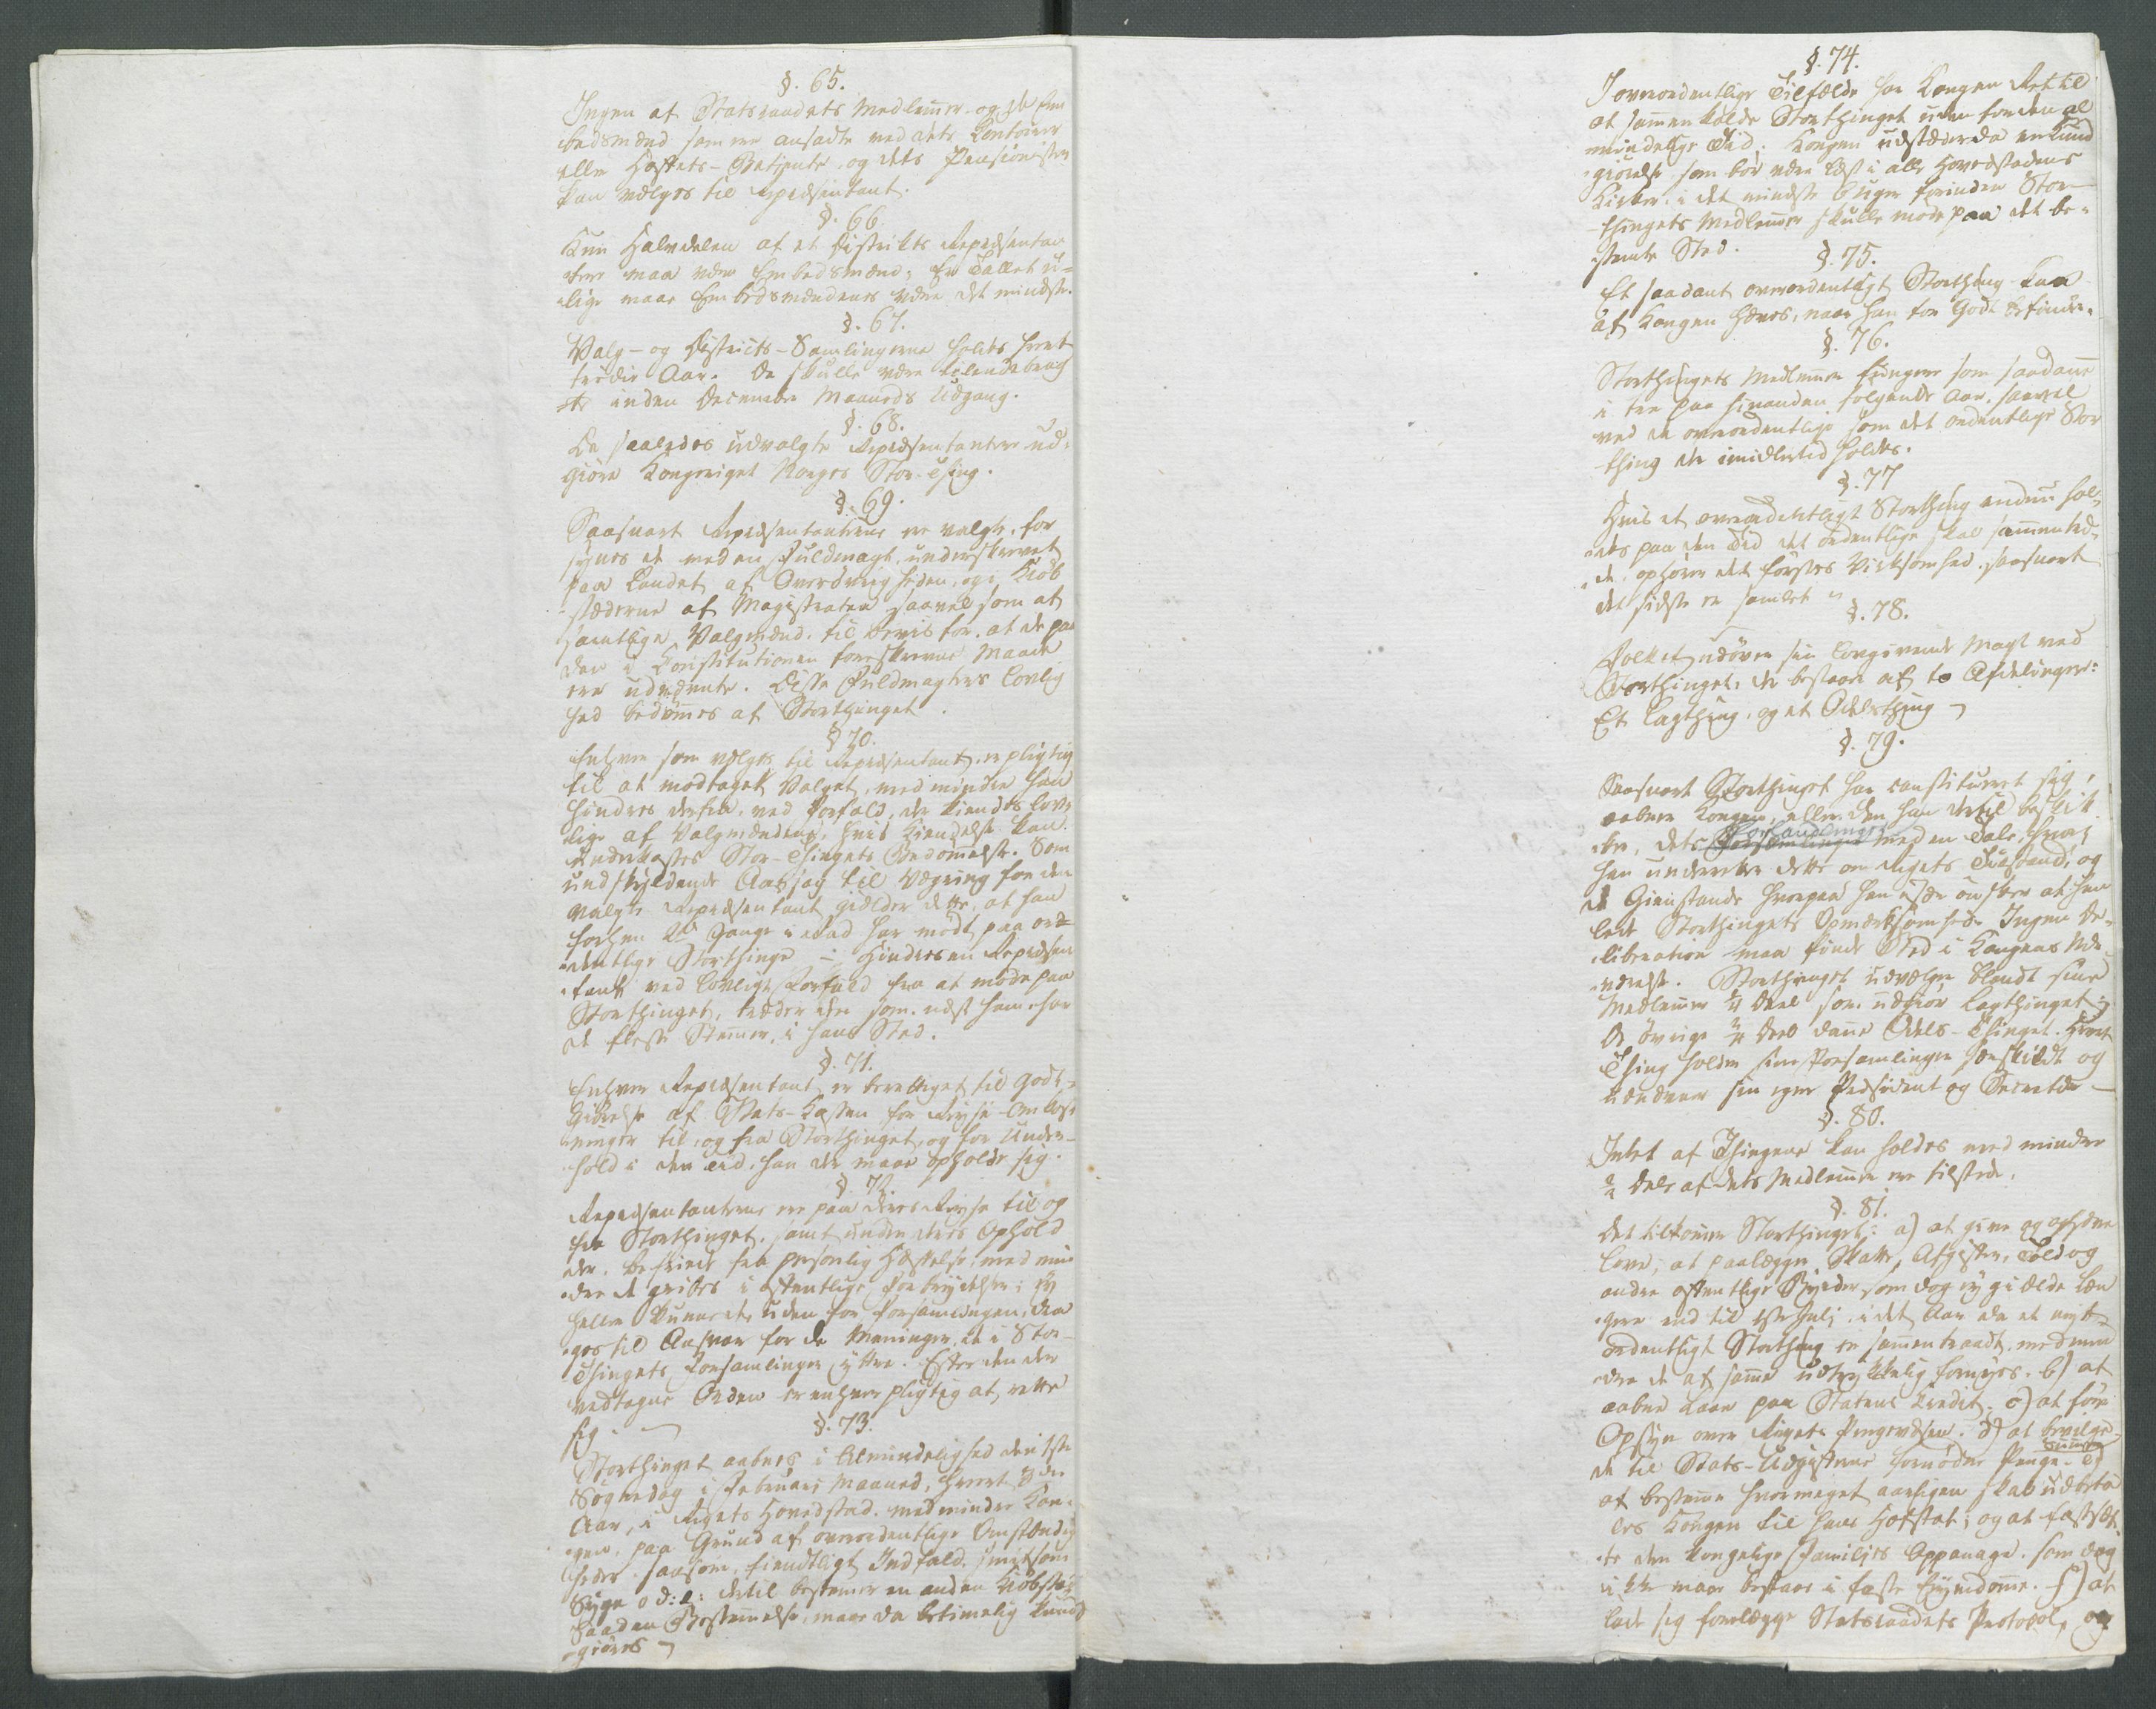 §. 65.
Ingen af Statsraadets Medlemmer og de Em
bedsmænd som ere ansadte ved dets Contoirer
eller Hoffets-Betiente og dets Pensionister
kan vælges til Repræsentant.
§. 66.
Kun Halvdelen af et Districts Repræsentan
tere maa være Embedsmænd; Er Tallet u-
lige maae Embedsmændenes være det mindste.
§. 67.
Valg- og Districts-Samlingerne holdes hvert
tredie Aar. De skulle være tilendebrag
te inden December Maaneds Udgang.
§. 68.
De saaledes udvalgte Repræsentantere ud-
giøre Kongeriget Norges Stor-Thing.
§. 69.
Saasnart Repræsentanterne ere valgte, for
synes de med en Fuldmagt, underskrevet
paa Landet af Øvrigheden, og i Kiøb
-stæderne af Magistraten saavelsom af
samtlige Valgmænd, til Beviis for, at de paa
den i Constitutionen foreskrevne Maade
ere udnævnte. Disse Fuldmagters Lovlig
hed bedømmes af Storthinget.
§ 70.
Enhver som vælges til Repræsentant, er pligtig
til at modtage Valget, med mindre han
hindres derfra, ved Forfald, der kiendes lov-
lige af Valgmændene, hvis Kiendelse kan
underkastes Stor-Thingets Bedømmelse. Som
undskyldende Aarsag til Vægring for den
valgte Repræsentant gielder dette, at han
forhen 2de Gange i Rad har mødt paa or-
-dentlige Storthinge - Hindres en Repræsen
-tant ved lovligt Forfald fra at møde paa
Storthinget, træder den som næst ham har
de fleste Stemmer, i hans Sted.
§. 71.
Enhver Repræsentant er berettiget til Godt-
giørelse af Stats-Cassen for Reyse-Omkost
ninger til, og fra Storthinget, og for Under-
hold i den Tid, han der maae opholde sig.
§ 72.
Repræsentanterne ere paa deres Reyse til og
fra Storthinget, samt under deres Ophold
der, befriede fra personlig Hæftelse; med min
-dre de gribes i offentlige Forbrydelser; ey
heller kunne de uden for Forsamlingen, dra
-ges til Ansvar for de Meninger, de i Stor-
Thingets Forsamlinger yttre. Efter den der
vedtagne Orden er enhver pligtig at rette
sig.
§. 73.
Storthinget aabnes i Almindelighed den 1ste
Søgnedag i Februari Maaned, hvert 3die
Aar, i Rigets Hovedstad, med mindre Kon-
-gen, paa Grund af overordentlige Omstændig
heder saasom, fiendtligt Indfald, smitsom
Syge o: d: l: dertil bestemmer en anden Kiøbstad
Saadan Bestemmelse, maae da betimelig kund
-giøres
§. 74.
I overordentlige Tilfælde har Kongen Ret til
at sammenkalde Storthinget uden for den al
mindelige Tid; Kongen udstæder da en Kund
-giørelse som bør være læst i alle Hovedstadens
Kirker, i det mindste 6 Uger forinden Stor-
-thingets Medlemmer skulle møde paa det be-
stemte Sted.
§. 75.
Et saadant overordentligt Storthing kan
af Kongen hæves, naar han for Godt befinder.
§. 76.
Storthingets Medlemmer fungere som saadanne
i tre paa hinanden følgende Aar, saavel
ved de overordentlige som det ordentlige Stor
-thing der imidlertid holdes.
§. 77
Hvis et overordentligt Storthing endnu hol-
-des paa den Tid det ordentlige skal sammentræ-
-de, ophører det førstes Virksomhed, saasnart
det sidste er samlet
§. 78.
Folket udøver sin lovgivende Magt ved
Storthinget, der bestaaer af to Afdelinger:
Et Lagthing, og et Odelsthing
§. 79.
Saasnart Storthinget har constitueret sig,
aabner Kongen, eller den han dertil beskik
-ker, dets Forhandlinger med en Tale, hvori
han underretter dette om Rigets Tilstand, og
de Gienstande hvorpaa han især ønsker at hen
lede Storthingets Opmærksomhed. Ingen De-
-liberation maa finde Sted i Kongens Nær-
-værelse. Storthinget udvælger blandt sine
Medlemmer ¼ Deel som udgiør Lagthinget,
de øvrige ¾ Deel danne Odels-Thinget. Hvert
Thing holder sine Forsamlinger særskildt og
udnævner sin egen Præsident og Secretær
§. 80.
Intet af Thingene kan holdes med mindre
⅔ Dele af dets Medlemmer ere tilstede.
§. 81.
Det tilkommer Storthinget: a) at give og ophæve
Love; at paalægge Skatter, Afgifter, Told og
andre offentlige Byrder, som dog ey gielde læn
-gere end til 1ste Juli, i det Aar da et nyt
ordentligt Storthing er sammentraadt, med min
-dre de af samme udtrykkelig fornyes. b) at
aabne Laan paa Statens Credit. c) at føre
Opsyn over Rigets Pengevæsen. d) at bevilge
de til Stats-Udgifterne fornødne Penge-Summer e)
at bestemme hvormeget aarligen skal udbeta
les Kongen til hans Hofstat; og at fastsæt
-te den kongelige Families Appanage, som dog
ikke maae bestaae i faste Eyendomme. f) at
lade sig forelægge Statsraadets Protocol, og